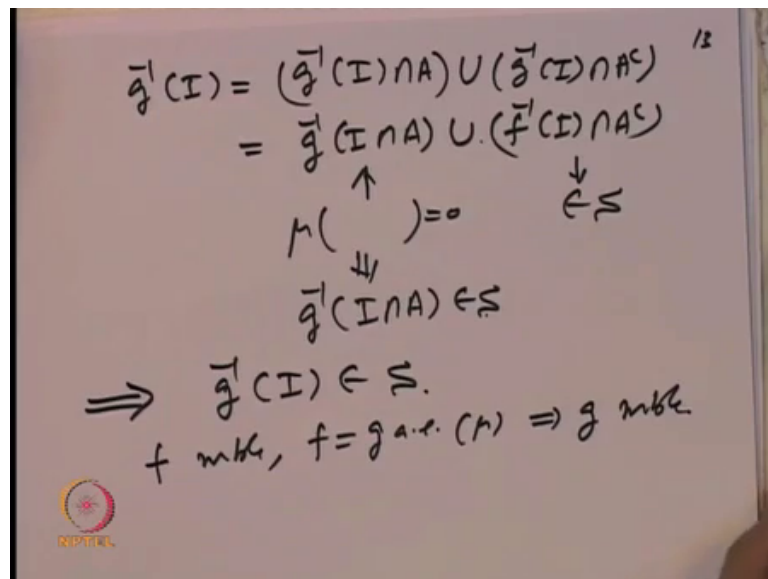 13
g⁻¹(I) = (g⁻¹(I)∩A) ∪ (g⁻¹(I)∩Aᶜ)
= g⁻¹(I∩A) ∪ (f⁻¹(I)∩Aᶜ)
↑ ↓
μ( )=0 ∈ S
⇓
g⁻¹(I∩A) ∈ S
⟹ g⁻¹(I) ∈ S.
f mble, f = g a.e. (μ) ⇒ g mble.
NPTEL